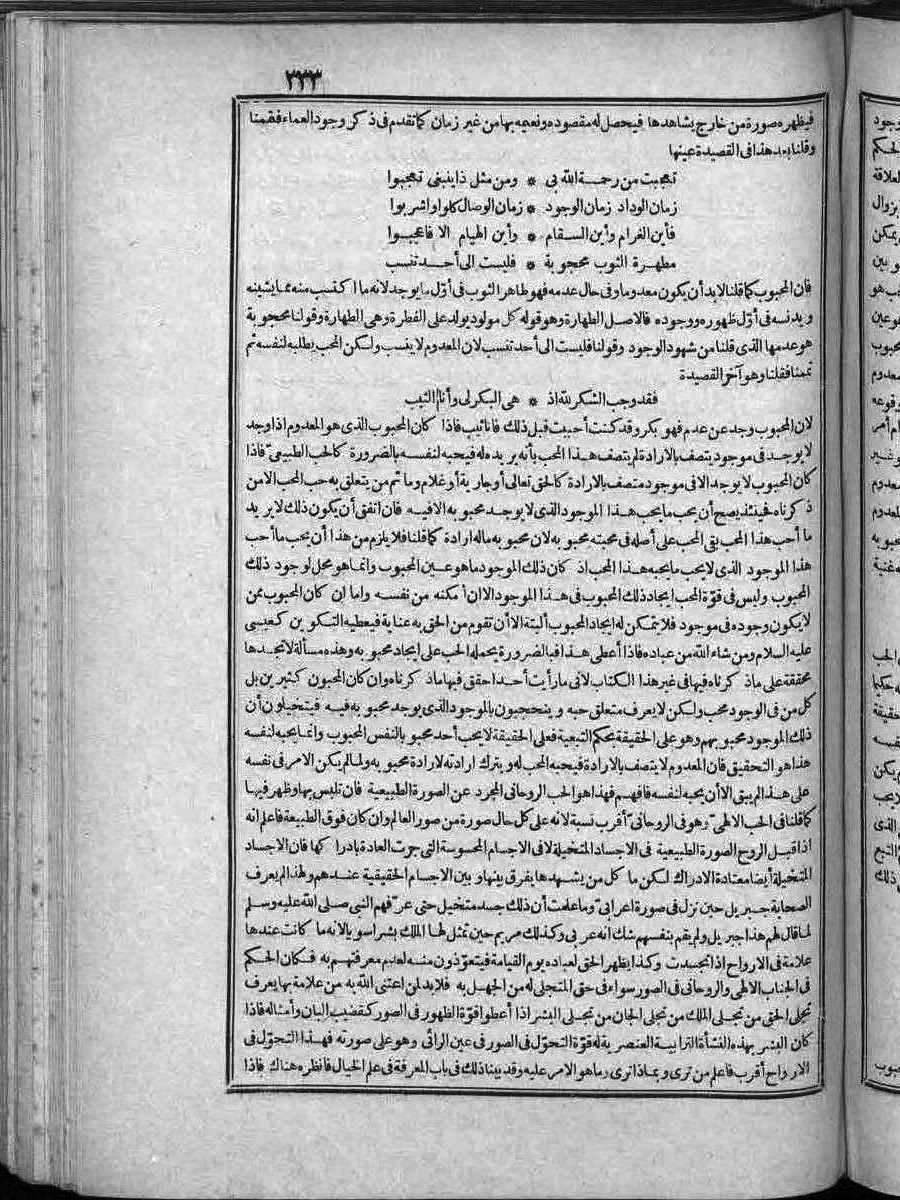 ٣٣٣
فيظهر صورة من خارج يشاهدها فيحصل له مقصوده ونعيمه بها من غير زمان كما تقدم فى ذكر وجود العماء فقمنا
وقلنا بعد هذا فى القصيدة عينها
تعجبت من رحمة الله بى * ومن مثل ذا ينبغى تعجبوا
زمان الوداد زمان الوجود * زمان الوصال كلوا واشربوا
فأين الغرام وأين السقام * وأين الهيام الا فاعجبوا
مطهرة الثوب محجوبة * فليست الى أحد تنسب
فان المحبوب كما قلنا لابد أن يكون معدوما وفى حال عدمه فهو طاهر الثوب فى أوّل ما يوجد لانه ما اكتسب منه مما يشينه
ويدنسه فى أوّل ظهوره ووجوده فالاصل الطهارة وهو قوله كل مولود يولد على الفطرة وهى الطهارة وقولنا محجوبة
هو عدمها الذى قلنا من شهود الوجود وقولنا فليست الى أحد تنسب لان المعدوم لا ينسب ولكن المحب يطلبه لنفسه ثم
تممنا فقلنا وهو آخر القصيدة
فقد وجب الشكر لله اذ * هى البكر لى وأنا الثيب
لان المحبوب وجد عن عدم فهو بكر وقد كنت أحببت قبل ذلك فانا ثيب فاذا كان المحبوب الذى هو المعدوم اذا وجد
لا يوجد فى موجود يتصف بالارادة لم يتصف هذا المحب بأنه يريد ما له فيحبه لنفسه بالضرورة كالحب الطبيعىّ فاذا
كان المحبوب لا يوجد الا فى موجود متصف بالارادة كالحق تعالى أو جارية أو غلام وما ثم من يتعلق به حب المحب الا من
ذكرناه فحينئذ يصح أن يحب ما يحب هذا الموجود الذى لا يوجد محبوبه الا فيه فان اتفق أن يكون ذلك لا يريد
ما أحب هذا المحب بقى المحب على أصله فى محبته محبوبه لان محبوبه ماله ارادة كما قلنا فلا يلزم من هذا أن يحب ما أحب
هذا الموجود الذى لا يحب ما يحبه هذا المحب اذ كان ذلك الموجود ما هو عين المحبوب وانما هو محل لوجود ذلك
المحبوب وليس فى قوّة المحب ايجاد ذلك المحبوب فى هذا الموجود الا ان أمكنه من نفسه واما ان كان المحبوب ممن
لا يكون وجوده فى موجود فلا يتمكن له ايجاد المحبوب ألبتة الا أن تقوم من الحق به عناية فيعطيه التكوين كعيسى
عليه السلام ومن شاء الله من عباده فاذا أعطى هذا فبالضرورة يحمله الحب على ايجاد محبوبه وهذه مسألة لا تجدها
محققة على ما ذكرناه فيها فى غير هذا الكتاب لانى ما رأيت أحدا حقق فيها ما ذكرناه وان كان المحبون كثيرين بل
كل من فى الوجود محب ولكن لا يعرف متعلق حبه وينحجبون بالموجود الذى يوجد محبوبه فيه فيتخيلون أن
ذلك الموجود محبوبهم وهو على الحقيقة بحكم التبعية فعلى الحقيقة لا يحب أحد محبوبا لنفس المحبوب وانما يحبه لنفسه
هذا هو التحقيق فان المعدوم لا يتصف بالارادة فيحبه المحب له ويترك ارادته لارادة محبوبه ولما لم يكن الامر فى نفسه
على هذا لم يبق الا أن يحبه لنفسه فافهم فهذا هو الحب الروحانى المجرد عن الصورة الطبيعية فان تلبس بها وظهر فيها
كما قلنا فى الحب الالهىّ وهو فى الروحانىّ أقرب نسبة لانه على كل حال صورة من صور العالم وان كان فوق الطبيعة فاعلم انه
اذا قبل الروح الصورة الطبيعية فى الاجساد المتخيلة لا فى الاجسام المحسوسة التى جرت العادة بادراكها فان الاجساد
المتخيلة أيضا معتادة الادراك لكن ما كل من يشهدها يفرق بينها وبين الاجسام الحقيقية عندهم ولهذا لم يعرف
الصحابة جبريل حين نزل فى صورة اعرابىّ وما علمت أن ذلك جسد متخيل حتى عرّفهم النبى صلى الله عليه وسلم
لما قال لهم هذا جبريل ولم يقم بنفسهم شك انه عربى وكذلك مريم حين تمثل لها الملك بشرا سويا لانه ما كانت عندها
علامة فى الارواح اذا تجسدت وكذا يظهر الحق لعباده يوم القيامة فيتعوّذون منه لعدم معرفتهم به فكان الحكم
فى الجناب الالهى والروحانى فى الصور سواء فى حق المتجلى له من الجهل به فلابد لمن اعتنى الله به من علامة بها يعرف
تجلى الحق من تجلى الملك من تجلى الجان من تجلى البشر اذا أعطوا قوّة الظهور فى الصور كقضيب البان وأمثاله فاذا
كان البشر بهذه النشأة الترابية العنصرية له قوّة التحوّل فى الصور فى عين الرائى وهو على صورته فهذا التحوّل فى
الارواح أقرب فاعلم من ترى وبماذا ترى وما هو الامر عليه وقد بينا ذلك فى باب المعرفة فى علم الخيال فانظره هناك فاذا